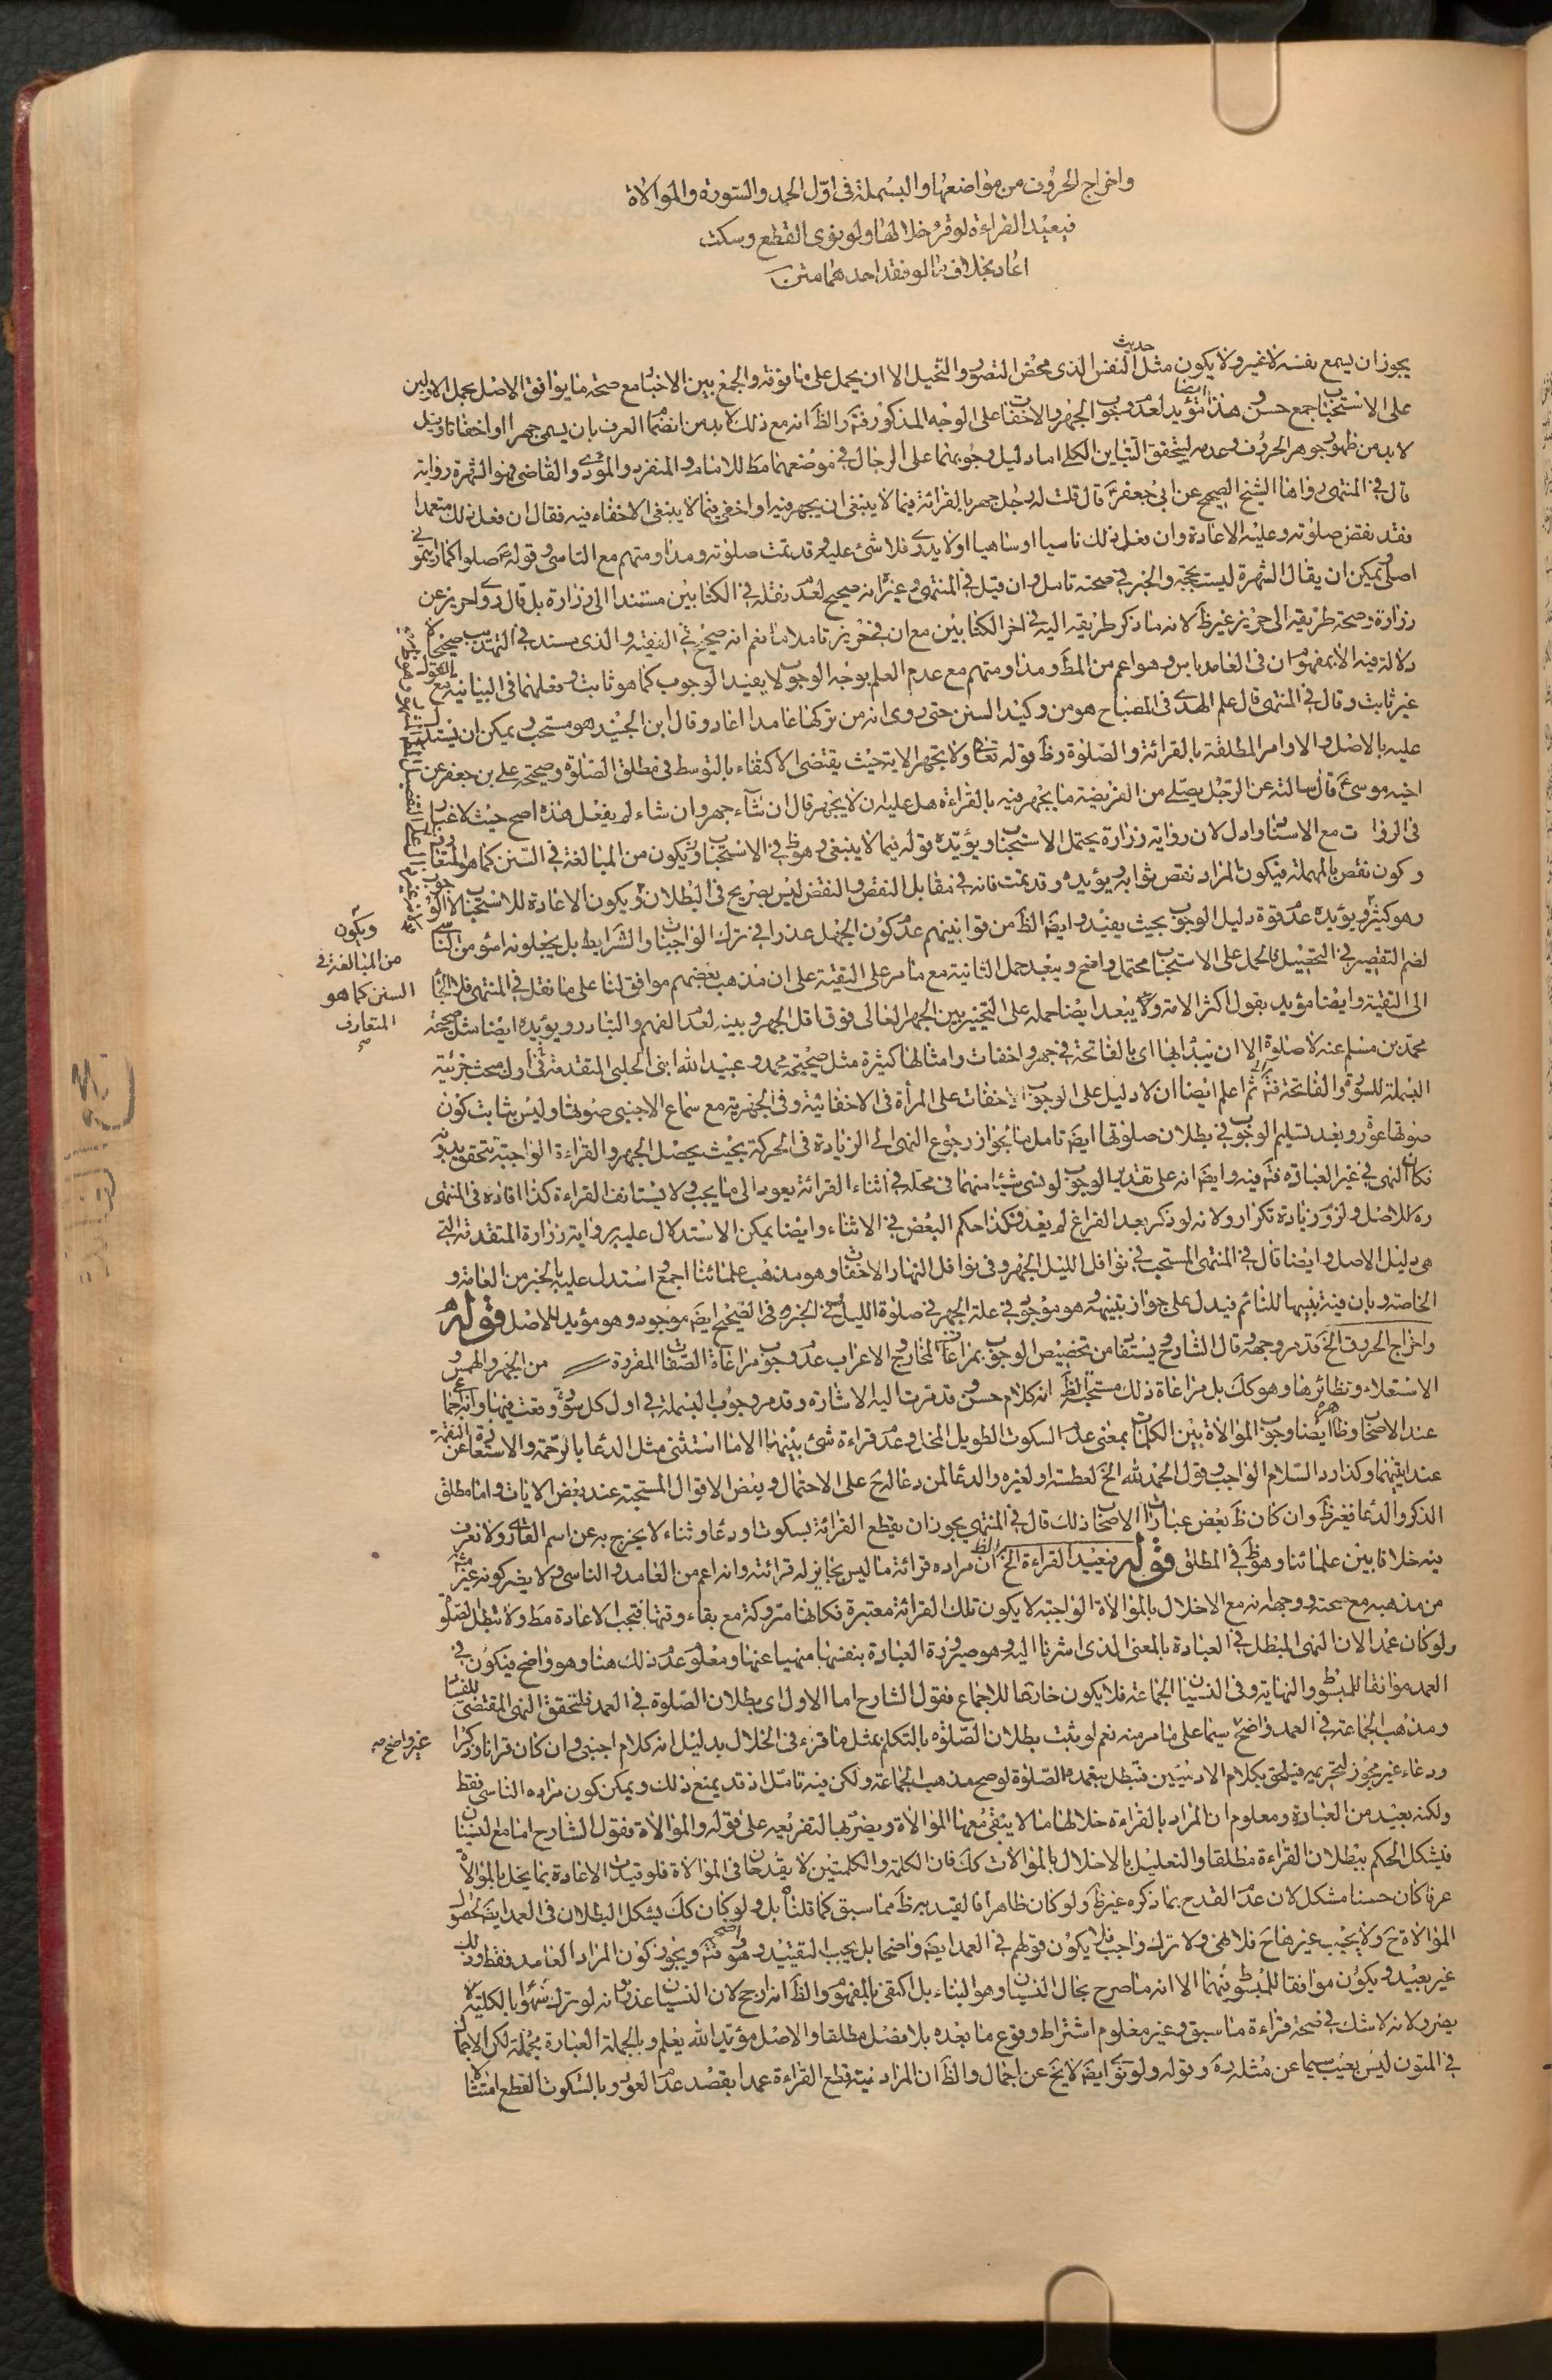 واخراج الحروف من مواضعها والبسملة فى اوّل الحمد والسورة والموالاة
فيعيد القراءة لو قرء خلالها ولو نوى القطع وسكت
اعاد بخلاف ما لو فقد احدهما متن
يجوز ان يسمع نفسه لا غير ولا يكون مثل حديث النفس الذى محض التصور والتخيل الا ان يحمل على ما فوقه والجمع بين الاخبار مع صحة ما يوافق الاصل بحمل الاولين
على الاستحباب جمع حسن وهذا ايضا مؤيد لعدم وجوب الجهر والاخفات على الوجه المذكور فتم والظ انه مع ذلك لا بد من انضمام العرف بان يسمى جهرا او اخفاتا وقيل
لا بد من ظهور جوهر الحروف وعدمه ليتحقق التباين الكلى اما دليل وجوبهما على الرجال فى موضعهما مط للامام والمنفرد والمؤدى والقاضى فهو الشهرة رواية
قال فى المنتهى رواها الشيخ الصحيح عن ابى جعفر ع قال قلت له رجل جهر بالقرائة فيما لا ينبغى ان يجهر فيه او اخفى فيما لا ينبغى الاخفاء فيه فقال ان فعل ذلك متعمدا
فقد نقض صلوته وعليه الاعادة وان فعل ذلك ناسيا او ساهيا او لا يدرى فلا شئ عليه وقد تمت صلوته ومداومتهم مع التاسى وقوله ع صلوا كما رايتمونى
اصلى ويمكن ان يقال الشهرة ليست بحجة والخبر فى صحته تامل وان قيل فى المنتهى وغيره انه صحيح لعدم نقله فى الكتابين مستندا الى زرارة بل قال روى حريز عن
زرارة وصحة طريقه الى حريز غير ظ لانه ما ذكر طريقه اليه فى اخر الكتابين مع ان فى حريز تاملا ما نعم انه صحيح فى الفقيه والذى مسند فى التهذيب صحيح لا
دلالة فيه الا بمفهوم ان فى العامد باس وهو اعم من المط ومداومتهم مع عدم العلم بوجه الوجوب لا يفيد الوجوب كما هو ثابت وفعلهما فى البيانية مع
غير ثابت وقال فى المنتهى قال علم الهدى فى المصباح هو من وكيد السنن حتى روى انه من تركها عامدا اعاد وقال ابن الجنيد هو مستحب ويمكن ان يستدل
عليه بالاصل والاوامر المطلقة بالقرائة والصلوة وظ قوله تعا ولا تجهر الاية حيث يقتضى الاكتفاء بالتوسط فى مطلق الصلوة وصحيحة على بن جعفر عن
اخيه موسى ع قال سالته عن الرجل يصلى من الفريضة ما يجهر فيه بالقراءة هل عليه ان لا يجهر قال ان شاء جهر وان شاء لم يفعل هذه اصح حيث لا غبار
فى الروا ت مع الاسناد وادل لان رواية زرارة يحتمل الاستحباب ويؤيده قوله فيما لا ينبغى وهو ظ فى الاستحباب ويكون من المبالغة فى السنن كما هو المتعارف
وكون نقص بالمهملة فيكون المراد نقص ثوابه ويؤيده وقد تمت فانه فى مقابل النقص والنقض ليس بصريح فى البطلان ويكون الاعادة للاستحباب لا الوجوب
وهو كثير ويؤيده عدم قوة دليل الوجوب بحيث يفيد وايضا الظ من قوانينهم عدم كون الجهل عذرا فى ترك الواجبات والشرايط بل يجعلونه اسوء من النسيان
لضم التقصير فى التحصيل فالحمل على الاستحباب محتمل واضح ويبعد حمل الثانية مع ما مر على التقية على ان مذهب بعضهم موافق لنا على ما نقل فى المنتهى
الى التقية وايضا مؤيد بقول اكثر الامة ولا يبعد ايضا حمله على التخيير بين الجهر العالى فوق اقل الجهر وبينه لعدم الفهم والتبادر ويؤيده ايضا مثل صحيحة
محمد بن مسلم عنه لا صلوة الا ان يبدأ بها اى بالفاتحة فى جهر واخفات وامثالها كثيرة مثل صحيحة محمد وعبيد الله ابنى الحلبى المتقدمة فى اول مبحث جزئية
البسملة للسورة والفاتحة فتم ثم اعلم ايضا ان لا دليل على الوجوب الاخفات على المرأة فى الاخفاتية وفى الجهرية مع سماع الاجنبى صوتها وليس بثابت كون
صوتها عورة وبعد تسليم الوجوب فى بطلان صلوتها ايض تامل ما لجواز رجوع النهى الى الزيادة فى الحركة بحيث يحصل الجهر والقراءة الواجبة تتحقق بدونه
فكان النهى فى غير العبادة فتم فيه وايض انه على تقدير الوجوب لو نسى شيئا منهما فى محله فى اثناء القرائة يعود الى ما يجب ولا يستانف القراءة كذا افاده فى المنتهى
ره للاصل ولزوم زيادة تكرار ولانه لو ذكر بعد الفراغ لم يعد فكذا حكم البعض فى الاثناء وايضا يمكن الاستدلال عليه برواية زرارة المتقدمة التى
هى دليل الاصل وايضا قال فى المنتهى المستحب فى نوافل الليل الجهر وفى نوافل النهار الاخفات وهو مذهب علمائنا اجمع استدل عليه بالخبر من العامة و
الخاصة وبان فيه تنبيها للنائم فيدل على جواز تنبيهه وهو موجود فى علة الجهر فى صلوة الليل فى الخبر وفى الصحيح ايض موجود وهو مؤيد للاصل قوله
واخراج الحروف الخ قد مر وجهه قال الشارح يستفاد من تخصيص الوجوب بمراعات المخارج الاعراب عدم وجوب مراعاة الصفات المقررة من الجهر والهمس و
الاستعلاء ونظائرها وهو كك بل مراعاة ذلك مستحب الظ انه كلام حسن وقد مرت اليه الاشارة وقد مر وجوب البسملة فى اول كل سورة وقعت فيها وانه اجماع
عند الاصحاب وظاهره ايضا وجوب الموالاة بين الكلمات بمعنى عدم السكوت الطويل المخل وعدم قراءة شئ بينها الا ما استثنى مثل الدعا بالرحمة والاستعاذة عن النقمة
عند ايتيهما وكذا رد السلام الواجب وقول الحمد لله الخ لعطسته او لغيره والدعا لمن دعا له على الاحتمال وبعض الاقوال المستحبة عند بعض الايات واما مطلق
الذكر والدعا فغير ظ وان كان ظ بعض عبارات الاصحاب ذلك قال فى المنتهى يجوز ان يقطع القرائة بسكوت او دعاء وثناء لا يخرج به عن اسم القارى ولا نعرف
فيه خلافا بين علمائنا وهو ظ فى المطلق قوله فيعيد القراءة الخ والظ ان مراده قرائة ما ليس بجايز له قرائته وانه اعم من العامد والناسى ولا يضر كونه غير
من مذهبه مع صحته ووجهه انه مع الاخلال بالموالاة الواجبة لا يكون تلك القرائة معتبرة فكانها متروكة مع بقاء وقتها فتجب الاعادة مط ولا تبطل الصلوة
ولو كان عمدا لان النهى المبطل فى العبادة بالمعنى الذى اشرنا اليه وهو صيرورة العبادة بنفسها منهيا عنها ومعلوم عدم ذلك هنا وهو واضح فيكون فى
العمد موافقا للمبسوط والنهاية وفى النسيان الجماعة فلا يكون خارقا للاجماع فقول الشارح اما الاول اى بطلان الصلوة فى العمد فلتحقق النهى المقتضى للفساد
ومذهب الجماعة فى العمد غير واضح سيما على ما مر منه نعم لو ثبت بطلان الصلوة بالتكلم بمثل ما قرء فى الخلال بدليل انه كلام اجنبى وان كان قرانا وذكرا
ودعاء غير مجوز لتحريمه فيلحق بكلام الادميين فتبطل بتعمده الصلوة لوضح مذهب الجماعة ولكن فيه تامل اذ قد يمنع ذلك ويمكن كون مراده الناسى فقط
ولكنه بعيد من العبارة ومعلوم ان المراد بالقراءة خلالها ما لا يبقى معها الموالاة ويضر بها لتفريعه على قوله والموالاة فقول الشارح اما مع النسيان
فيشكل الحكم ببطلان القراءة مطلقا والتعليل بالاخلال بالموالات كك فان الكلمة والكلمتين لا يقدحان فى الموالاة فلو قيدت الاعادة بما يخل بالموالاة
عرفا كان حسنا مشكل لان عدم القدح بما ذكره غير ظ ولو كان ظاهرا فالقيد به ظ مما سبق كما قلناه بل ولو كان كك يشكل البطلان فى العمد ايض لحصول
الموالاة ح ولا يجب غيرها ح فلا نهى ولا ترك واجب فلا يكون قولهم فى العمد ايض واضحا بل يجب التقييد وهو واضح فتم ويجوز كون المراد العامد فقط وذلك
غير بعيد ويكون موافقا للمبسوط فيهما الا انه ما صرح بحال النسيان وهو البناء بل اكتفى بالمفهوم والظ انه ارجح لان النسيان عذر وانه لو ترك سهوا بالكلية لا
يضر ولانه لا شك فى صحة قراءة ما سبق وغير معلوم اشتراط وقوع ما بعده بلا فصل مطلقا والاصل مؤيد الله يعلم وبالجملة العبارة مجملة لكن الاجمال
فى المتون ليس بعيب سيما عن مثله ره وقوله ولو نوى ايض لا يخ عن اجمال والظ ان المراد نية قطع القراءة عمدا بقصد عدم العود وبالسكوت القطع امتثالا
ويكون
من المبالغة فى
السنن كما هو
المتعارف
صح
غير واضح صه